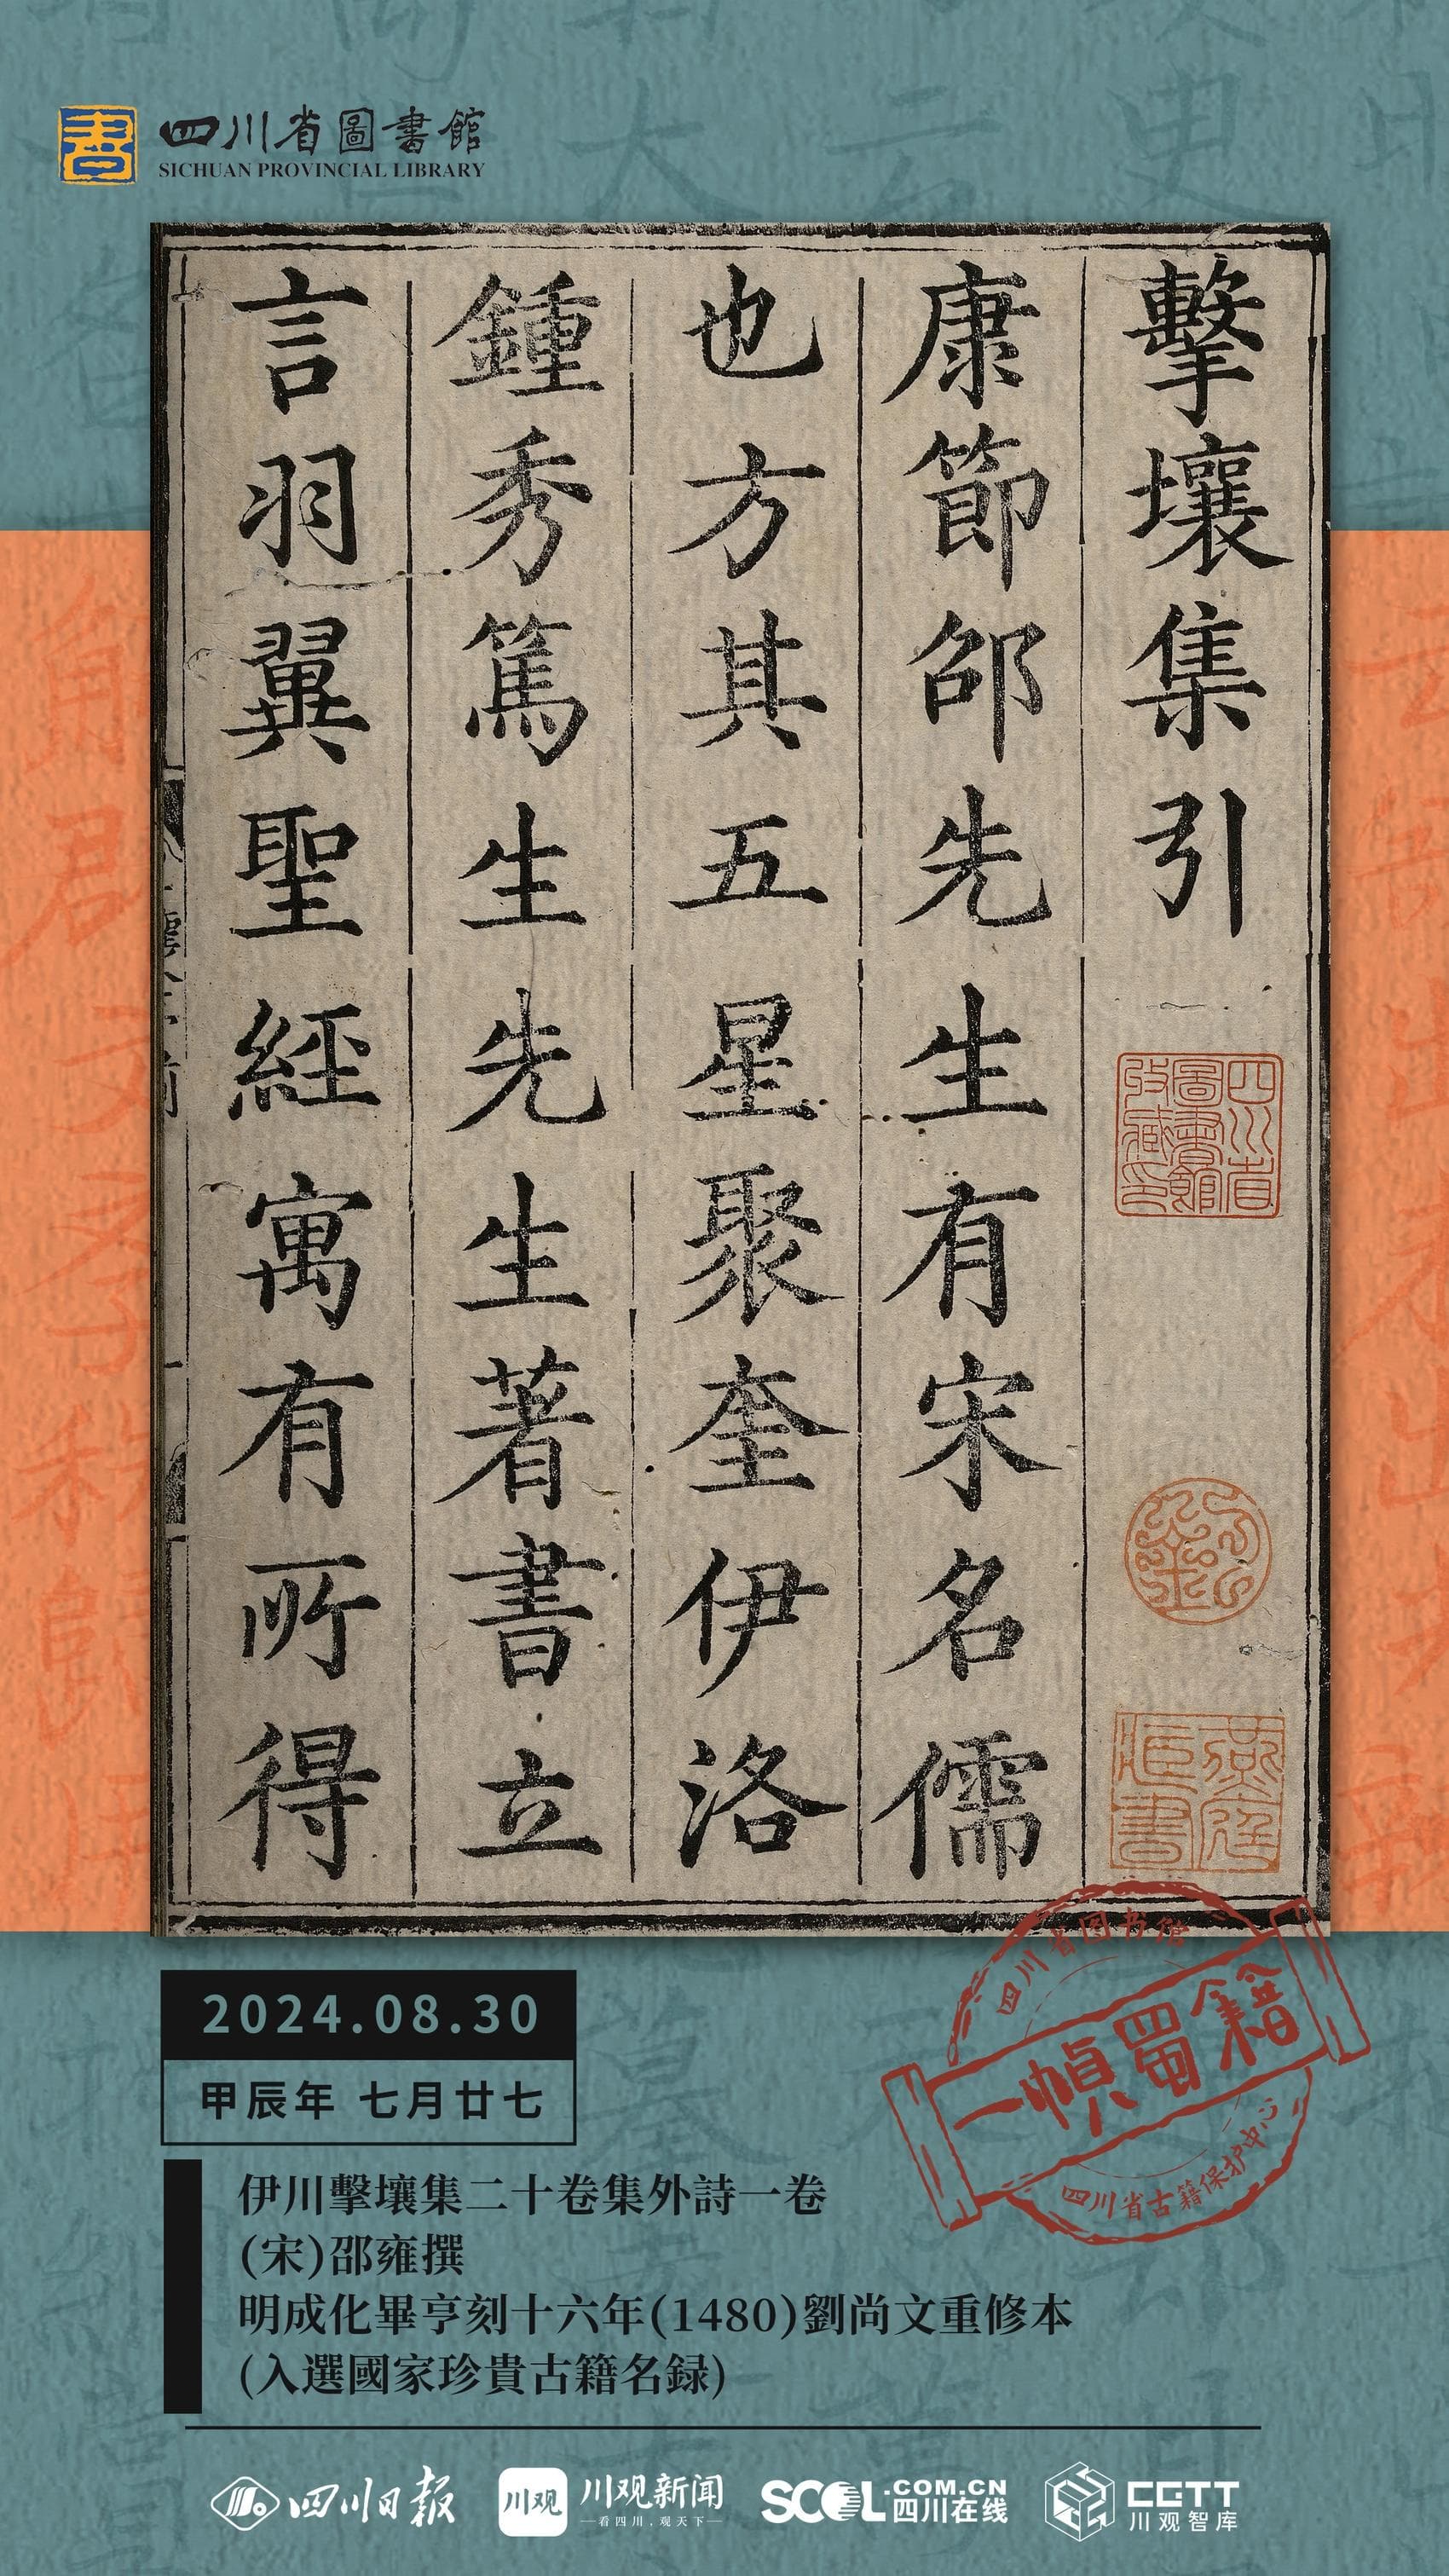 四川省圖書館
SICHUAN PROVINCIAL LIBRARY
擊壤集引
康節邵先生有宋名儒
也方其五星聚奎伊洛
鍾秀篤生先生著書立
言羽翼聖經寓有所得
四川省
圖書館
收藏印
藏書
四川省图书馆
一幀蜀籍
四川省古籍保护中心
2024.08.30
甲辰年 七月廿七
伊川擊壤集二十卷集外詩一卷
(宋)邵雍撰
明成化畢亨刻十六年(1480)劉尚文重修本
(入選國家珍貴古籍名録)
四川日报
川观
川观新闻
—看四川,观天下—
SCOL.COM.CN
四川在线
CGTT
川观智库